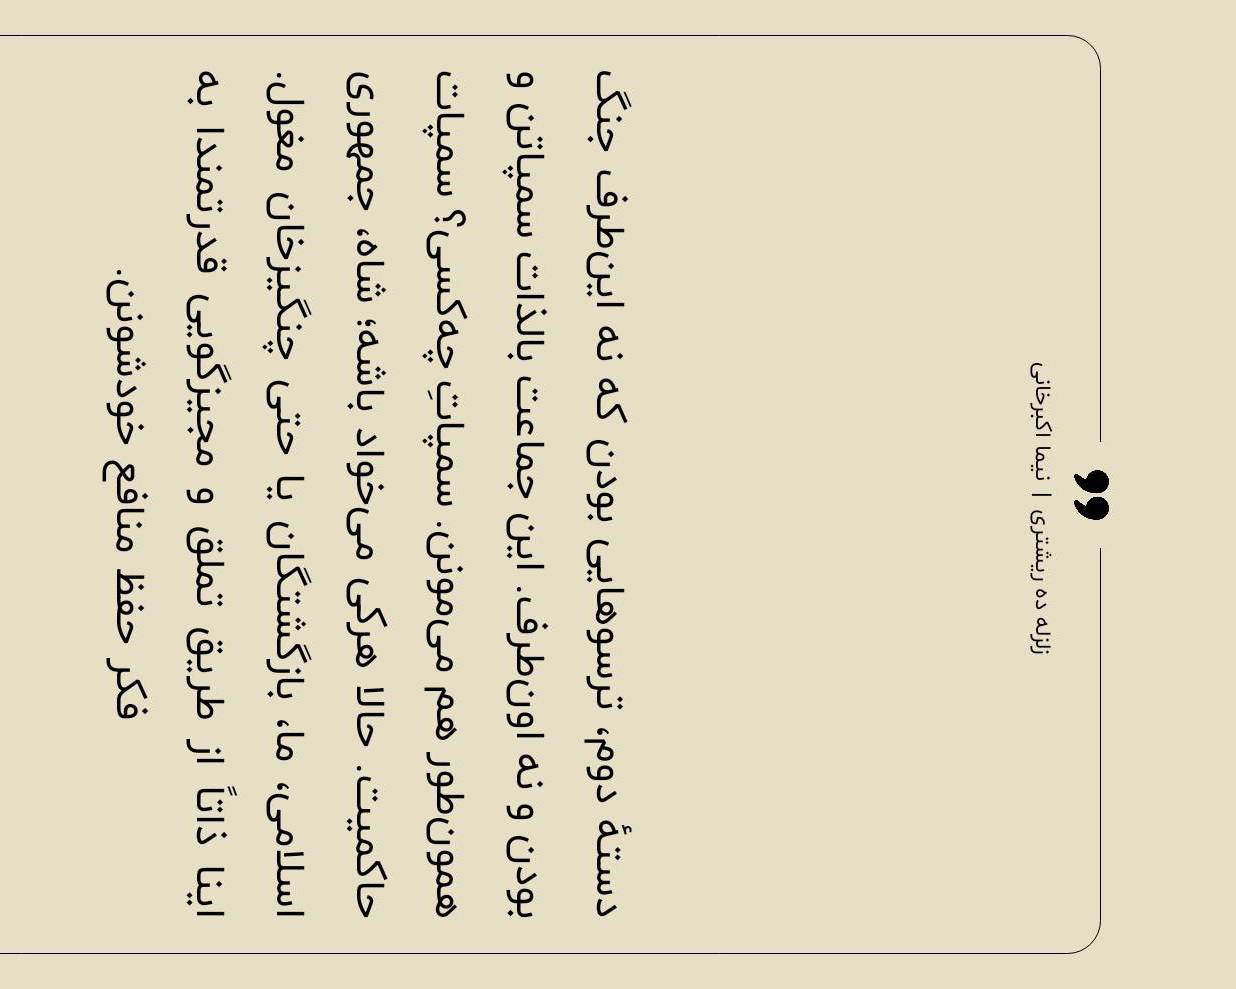 زلزله ده ریشتری | نیما اکبرخانی
دستهٔ دوم، ترسوهایی بودن که نه این‌طرف جنگ
بودن و نه اون‌طرف. این جماعت بالذات سمپاتن و
همون‌طور هم می‌مونن. سمپاتِ چه‌کسی؟ سمپات
حاکمیت. حالا هرکی می‌خواد باشه؛ شاه، جمهوری
اسلامی، ما، بازگشتگان یا حتی چنگیزخان مغول.
اینا ذاتاً از طریق تملق و مجیزگویی قدرتمندا به
فکر حفظ منافع خودشونن.